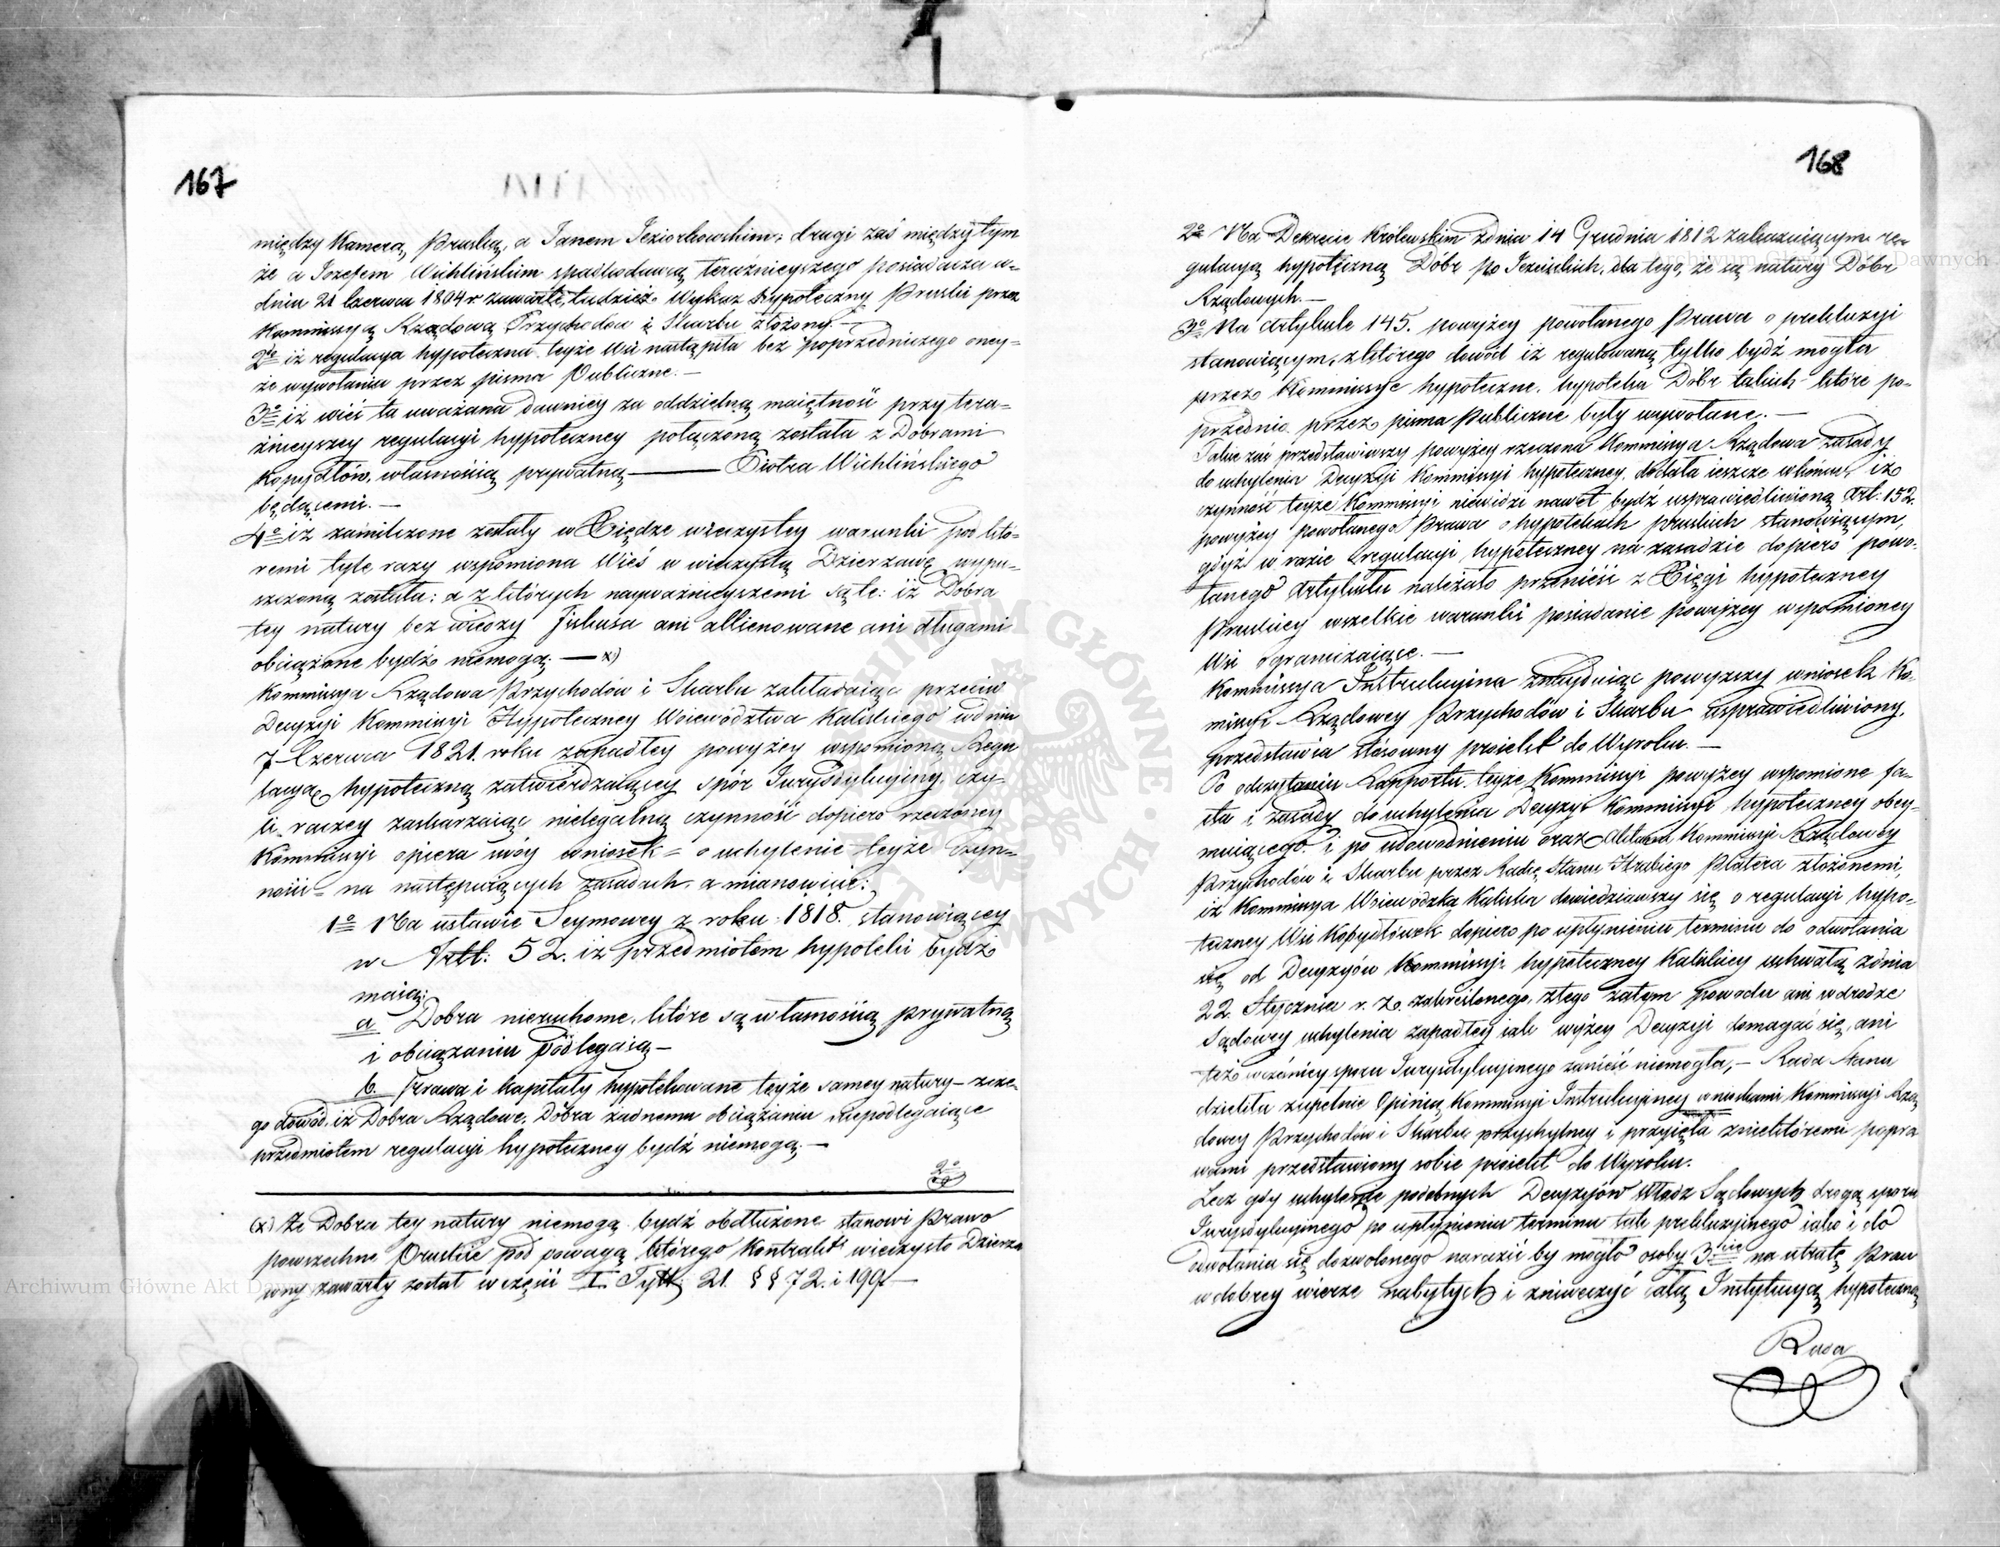 167
między Kamerą Pruską, a Janem Jeziorkowskim, drugi zaś między tym
że a Jozefem Wichlińskim spadkodawcą teraźnieyszego posiadacza w
dniu 21 Czerwca 1804 r zawarte, tudzież Wykaz hypoteczny Pruski przez
Kommissyą Rządową Przychodów i Skarbu złożony.—
2do iż regulacya hypoteczna teyże Wsi nastąpiła bez poprzedniczego oney-
że wywołania przez pisma Publiczne.—
3o iż wieś ta uważana dawniey za oddzielną maiętność przy tera-
źnieyszey regulacyi hypoteczney połączoną została z Dobrami
Kopydłów, własnością prywatną ——— Piotra Wichlińskiego
będącemi.—
4o iż zamilczone zostały w Xiędze wieczystey warunki pod któ-
remi tyle razy wspomiona Wieś w wieczystą Dzierzawę wypu-
szczoną została: a z których nayważnieyszemi są te: iż Dobra
tey natury bez wiedzy Fiskusa ani allienowane ani długami
obciążone bydź niemogą.— x)
Kommissya Rządowa Przychodów i Skarbu zakładaiąc przeciw
Decyzyi Kommissyi Hypoteczney Woiewództwa Kaliskiego w dniu
7 Czerwca 1821. roku zapadłey powyżey wspomioną Regu
lacyą hypoteczną zatwierdzaiącey spór Jurysdykcyiny, czy-
li raczey zaskarzaiąc nielegalną czynność dopiero rzeczoney
Kommissyi opiera swóy wniosek = o uchylenie teyże Czyn-
ności = na następuiących zasadach, a mianowicie:
1o Na ustawie Seymowey z roku 1818. stanowiącey
w Artt: 52. iż przedmiotem hypoteki bydź
maią:
a Dobra nieruchome, które są własnością prywatną
i obciążaniu podlegaią —
b. Prawa i kapitały hypotekowane teyże samey natury — z cze-
go dowód, iż Dobra Rządowe, Dobra żadnemu obciążaniu niepodlegaiące
przedmiotem regulacyi hypoteczney bydź niemogą.—
2o
(x) Że Dobra tey natury niemogą bydź obdłużone stanowi Prawo
powszechne Pruskie pod powagą którego Kontrakt wieczysto Dzierża
wny zawarty został w części I. Tytt: 21. § § 72. i 199.—
168
2o Na Dekrecie Królewskim z dnia 14 Grudnia 1812 zakazuiącym re-
gulacyą hypoteczną Dóbr po Jezuickich, dla tego, że są natury Dóbr
Rządowych.—
3o Na Artykule 145. powyżey powołanego Prawa o prekluzyi
stanowiącym, z którego dowód iż regulowaną tylko bydź mogła
przez Kommissye hypoteczne, hypoteka Dóbr takich które po-
przednio przez pisma Publiczne były wywołane.—
Takie zaś przedstawiwszy powyżey rzeczona Kommissya Rządowa zasady
do uchylenia Decyzyi Kommissyi hypoteczney, dodała ieszcze wkońcu, iż
czynność teyże Kommissyi niewidzi nawet bydź usprawiedliwioną Art. 152.
powyżey powołanego Prawa o hypotekach pruskich stanowiącym,
gdyż w razie regulacyi hypoteczney na zasadzie dopiero powo-
łanego Artykułu należało przenieść z Xięgi hypoteczney
Pruskiey wszelkie warunki posiadanie powyżey wspomioney
Wsi ograniczaiące.—
Kommissya Instrukcyina znayduiąc powyższy wniosek Ko-
missyi Rządowey Przychodów i Skarbu usprawiedliwiony,
przedstawia stosowny proiekt do Wyroku.—
Po odczytaniu Rapportu teyże Kommissyi powyżey wspomione fa-
kta i zasady do uchylenia Decyzyi Kommissyi hypoteczney obey-
muiącego, i po udowodnieniu oraz Aktami Kommissyi Rządowey
Przychodów i Skarbu przez Radcę Stanu Hrabiego Platera złożonemi,
iż Kommissya Woiewódzka Kaliska dowiedziawszy się o regulacyi hypo-
teczney Wsi Kopydłówek dopiero po upłynieniu terminu do odwołania
się od Decyzyów Kommissyi hypoteczney Kaliskiey uchwałą z dnia
22. Stycznia r. z. zakreślonego, z tego zatym powodu ani w drodze
Sądowey uchylenia zapadłey iak wyżey Decyzyi domagać się, ani
też wcześniey sporu Jurysdykcyinego zanieść niemogła,— Rada Stanu
dzieliła zupełnie Opinią Kommissyi Instrukcyiney wnioskami Kommissyi Rzą
dowey Przychodów i Skarbu przychylney i przyięła z niektóremi popra
wami przedstawiony sobie proiekt do Wyroku.
Lecz gdy uchylenie podobnych Decyzyów Władz Sądowych drogą sporu
Jurysdykcyinego po upłynieniu terminu tak prekluzyinego iako i do
odwołania się dozwolonego narazić by mogło osoby 3cie na utratę Praw
w dobrey wierze nabytych i zniweczyć całą Instytucyą hypoteczną
Rada